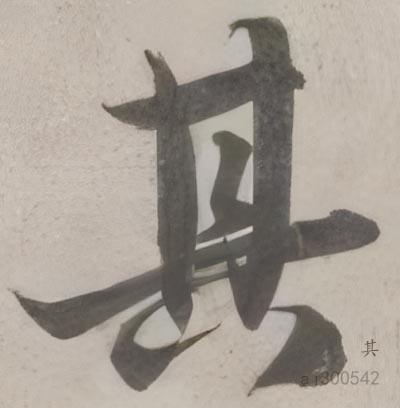 其
其
ai300542